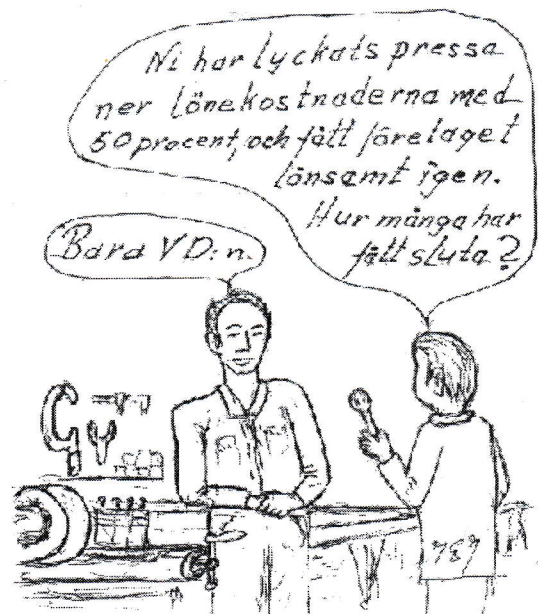 Ni har lyckats pressa
ner lönekostnaderna med
50 procent, och fått företaget
lönsamt igen.
Hur många har
fått sluta?
Bara VD:n.